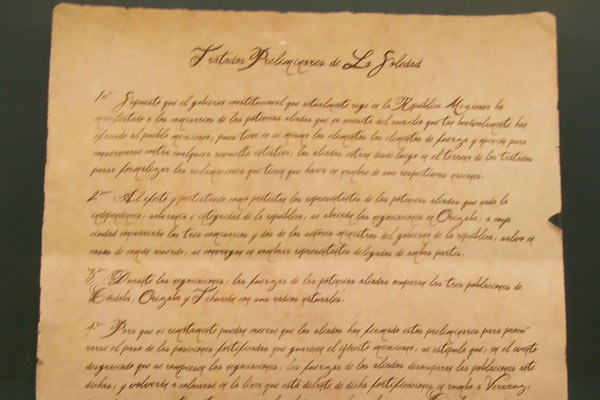 Tratados Preleminares de La Soledad
1ª Supuesto que el gobierno constitucional que actualmente rige en la República Mexicana ha
manifestado a los comisarios de las potencias aliadas que no necesita del auxilio que tan benévolamente han
ofrecido al pueblo mexicano, pues tiene en sí mismo los elementos los elementos de fuerza y opinión para
conservarse contra cualquier revuelta intestina; los aliados entran desde luego en el terreno de los tratados
para formalizar las reclamaciones que tienen que hacer en nombre de sus respectivas naciones.
2ª Al efecto y protestando como protestan los representantes de las potencias aliadas que nada la
independencia, soberanía e integridad de la república, se abrirán las negociaciones en Orizaba; a cuya
ciudad concurrirán los tres comisarios y dos de los señores ministros del gobierno de la república, salvo en
casos de común acuerdo, se convengan en nombrar representantes delegados de ambas partes.
3ª Durante las negociaciones, las fuerzas de las potencias aliadas ocuparán las tres poblaciones de
Córdoba, Orizaba y Tehuacán con sus radios naturales.
4ª Para que ni remotamente puedan creerse que los aliados han firmado estos preleminares para procu-
rarse el paso de las posiciones fortificadas que guarece el ejército mexicano, se estipula que, en el evento
desgraciado que se rompiesen las negociaciones, las fuerzas de los aliados desocuparán las poblaciones ante
dichas, y volverán a colocarse en la línea que está delante de dicha fortificaciones en rumbo a Veracruz;